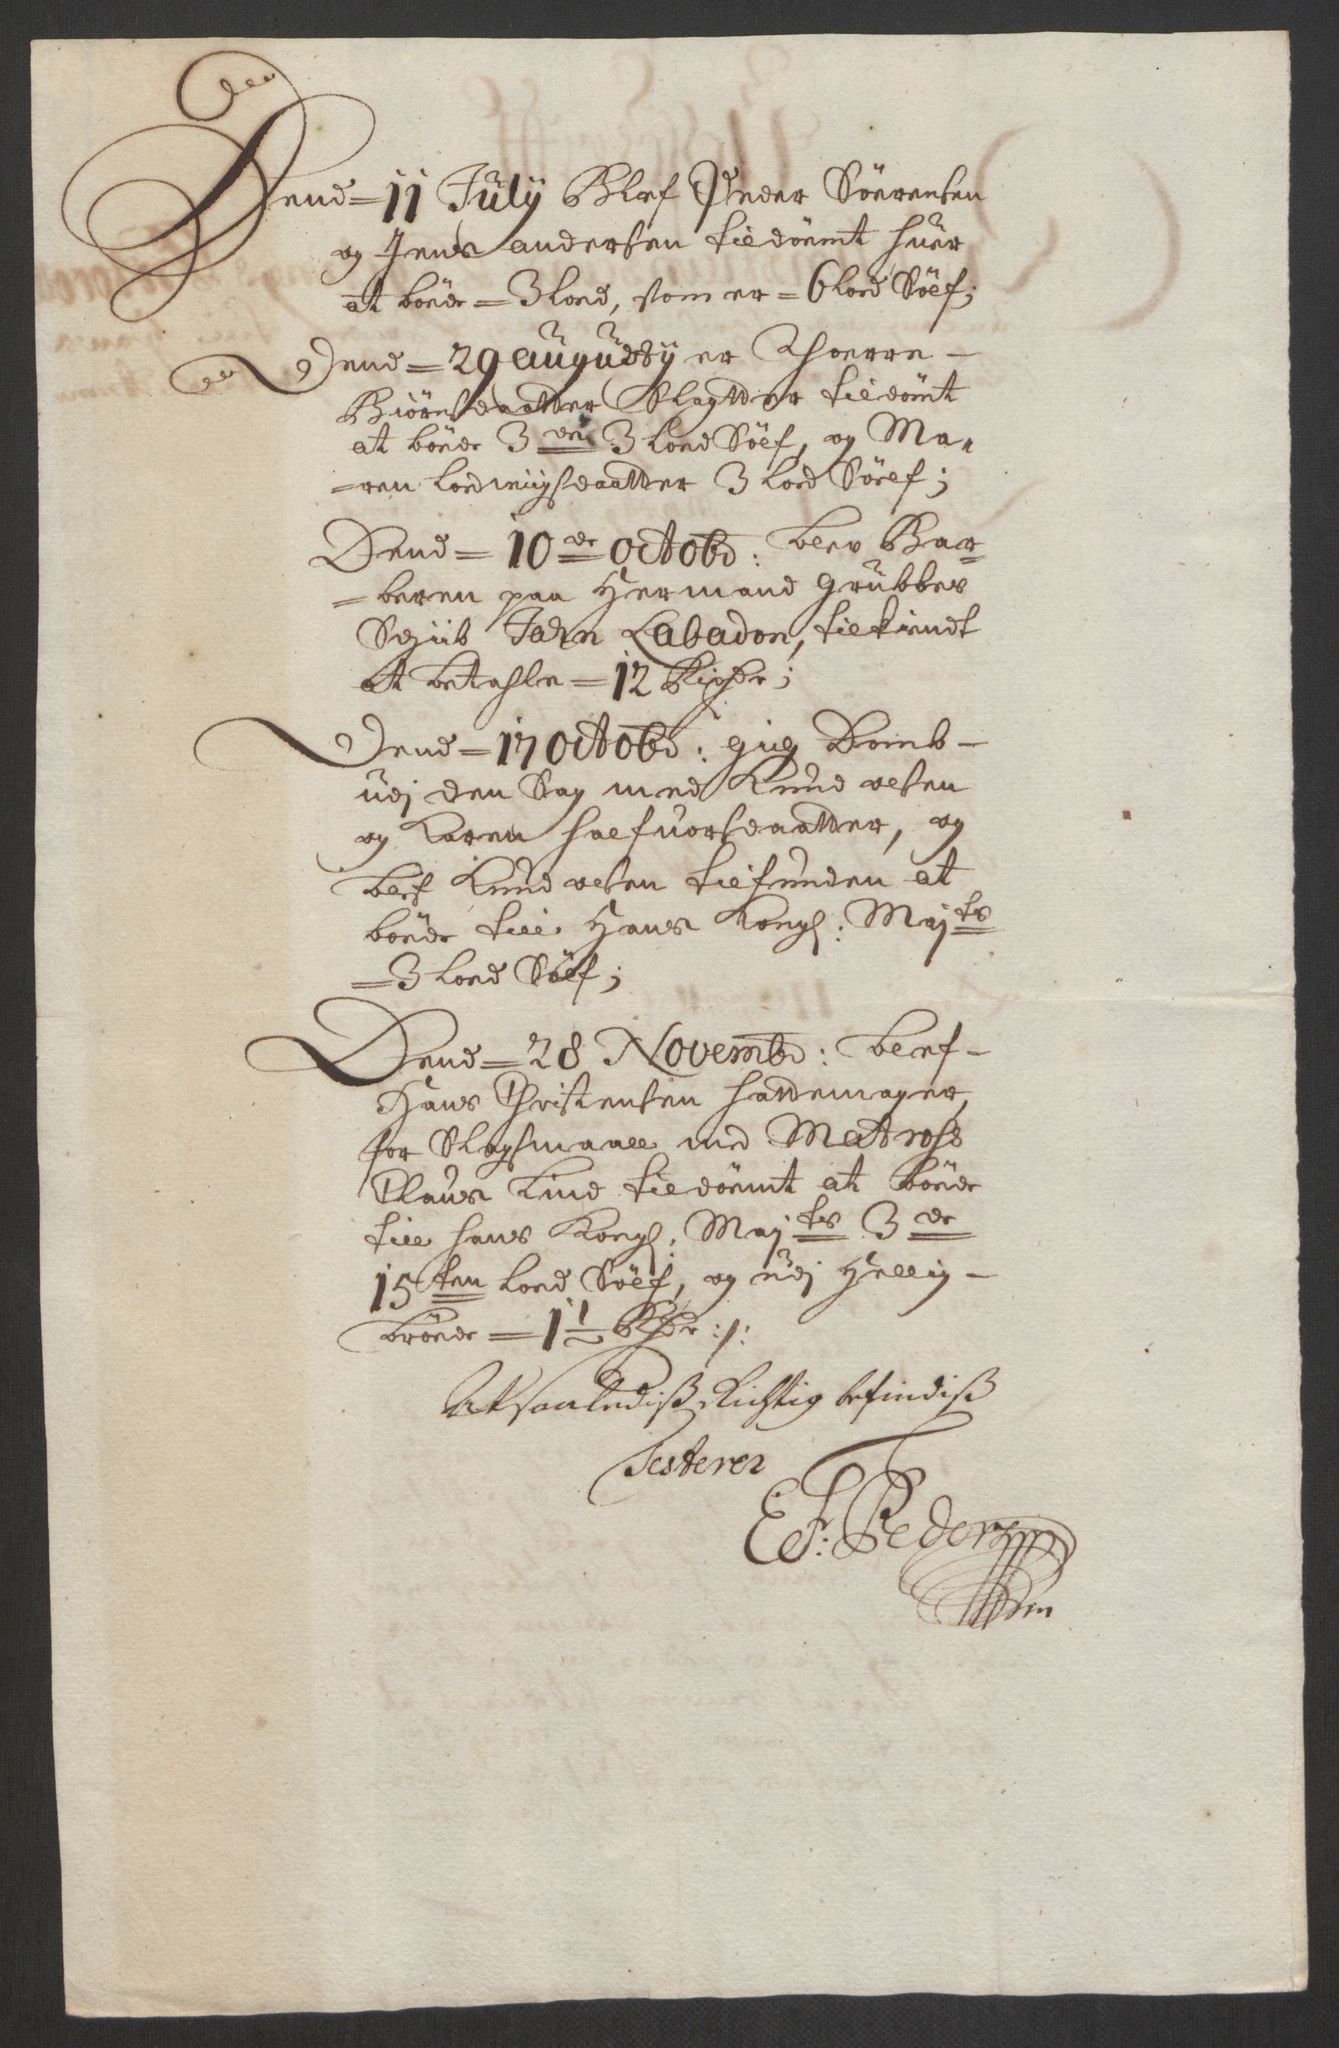 Dend = 11 July Blef Peder Sörensen
og Jens andersen tildömt huer
at böede = 3 Lod, som er = 6 Lod Sölf;
Dend = 29 Augusty er Thorre-
Biörnsdaatter Slagtter tildömt
at böede 3 de 3 Lod Sölf, og Ma=
=ren Lodwigsdaatter 3 Lod Sölf;
Dend = 10 de Octobr: blev Bar=
=beren paa Hermand Grubbes
Schib Jahn Labadon, tilkiendt
at betahle = 12 Rixdr;
Dend = 17 Octobr: gig Domb-
udj den Sag med Knud olsen
og Karen halfuorsdaatter, og
blef Knud olsen tilfunden at
böede till Hans Kongl: Maj ts
= 3 Lod Sölf;
Dend = 28 Novembr: blef-
Hans Christensen hattemager,
for Slagsmaall med Matrohs
Claus Lind tildömt at böede
till hans Kongl: Maj ts 3 de
15 ten Lod Sölf, og udj Hellig-
bröede = 1 1/2 Rdr:/:
At saalediß Richtig befindiß
Testerer
E F: Pedersen